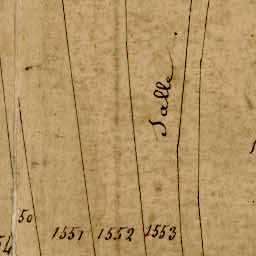 Salle
50
1551 1552 1553
54